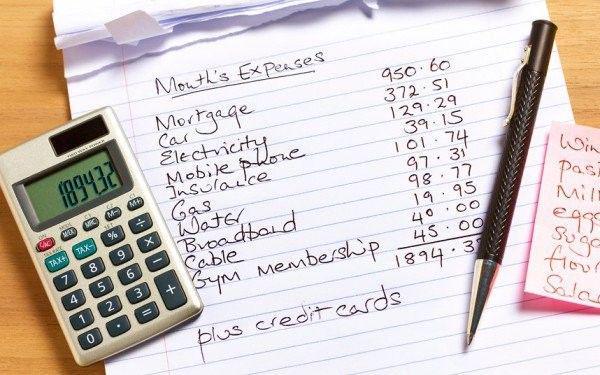 Month's Expenses
Mortgage 950.60
Car 372.51
Electricity 129.29
Mobile phone 39.15
Insurance 101.74
Gas 97.31
Water 98.77
Broadband 19.95
Cable 40.00
Gym Membership 45.00
1894.32
plus credit cards
189432
MRC M- M+
TAX+ TAX- % ÷
7 8 9 ×
4 5 6 -
1 2 3 +
0 . =
eggs